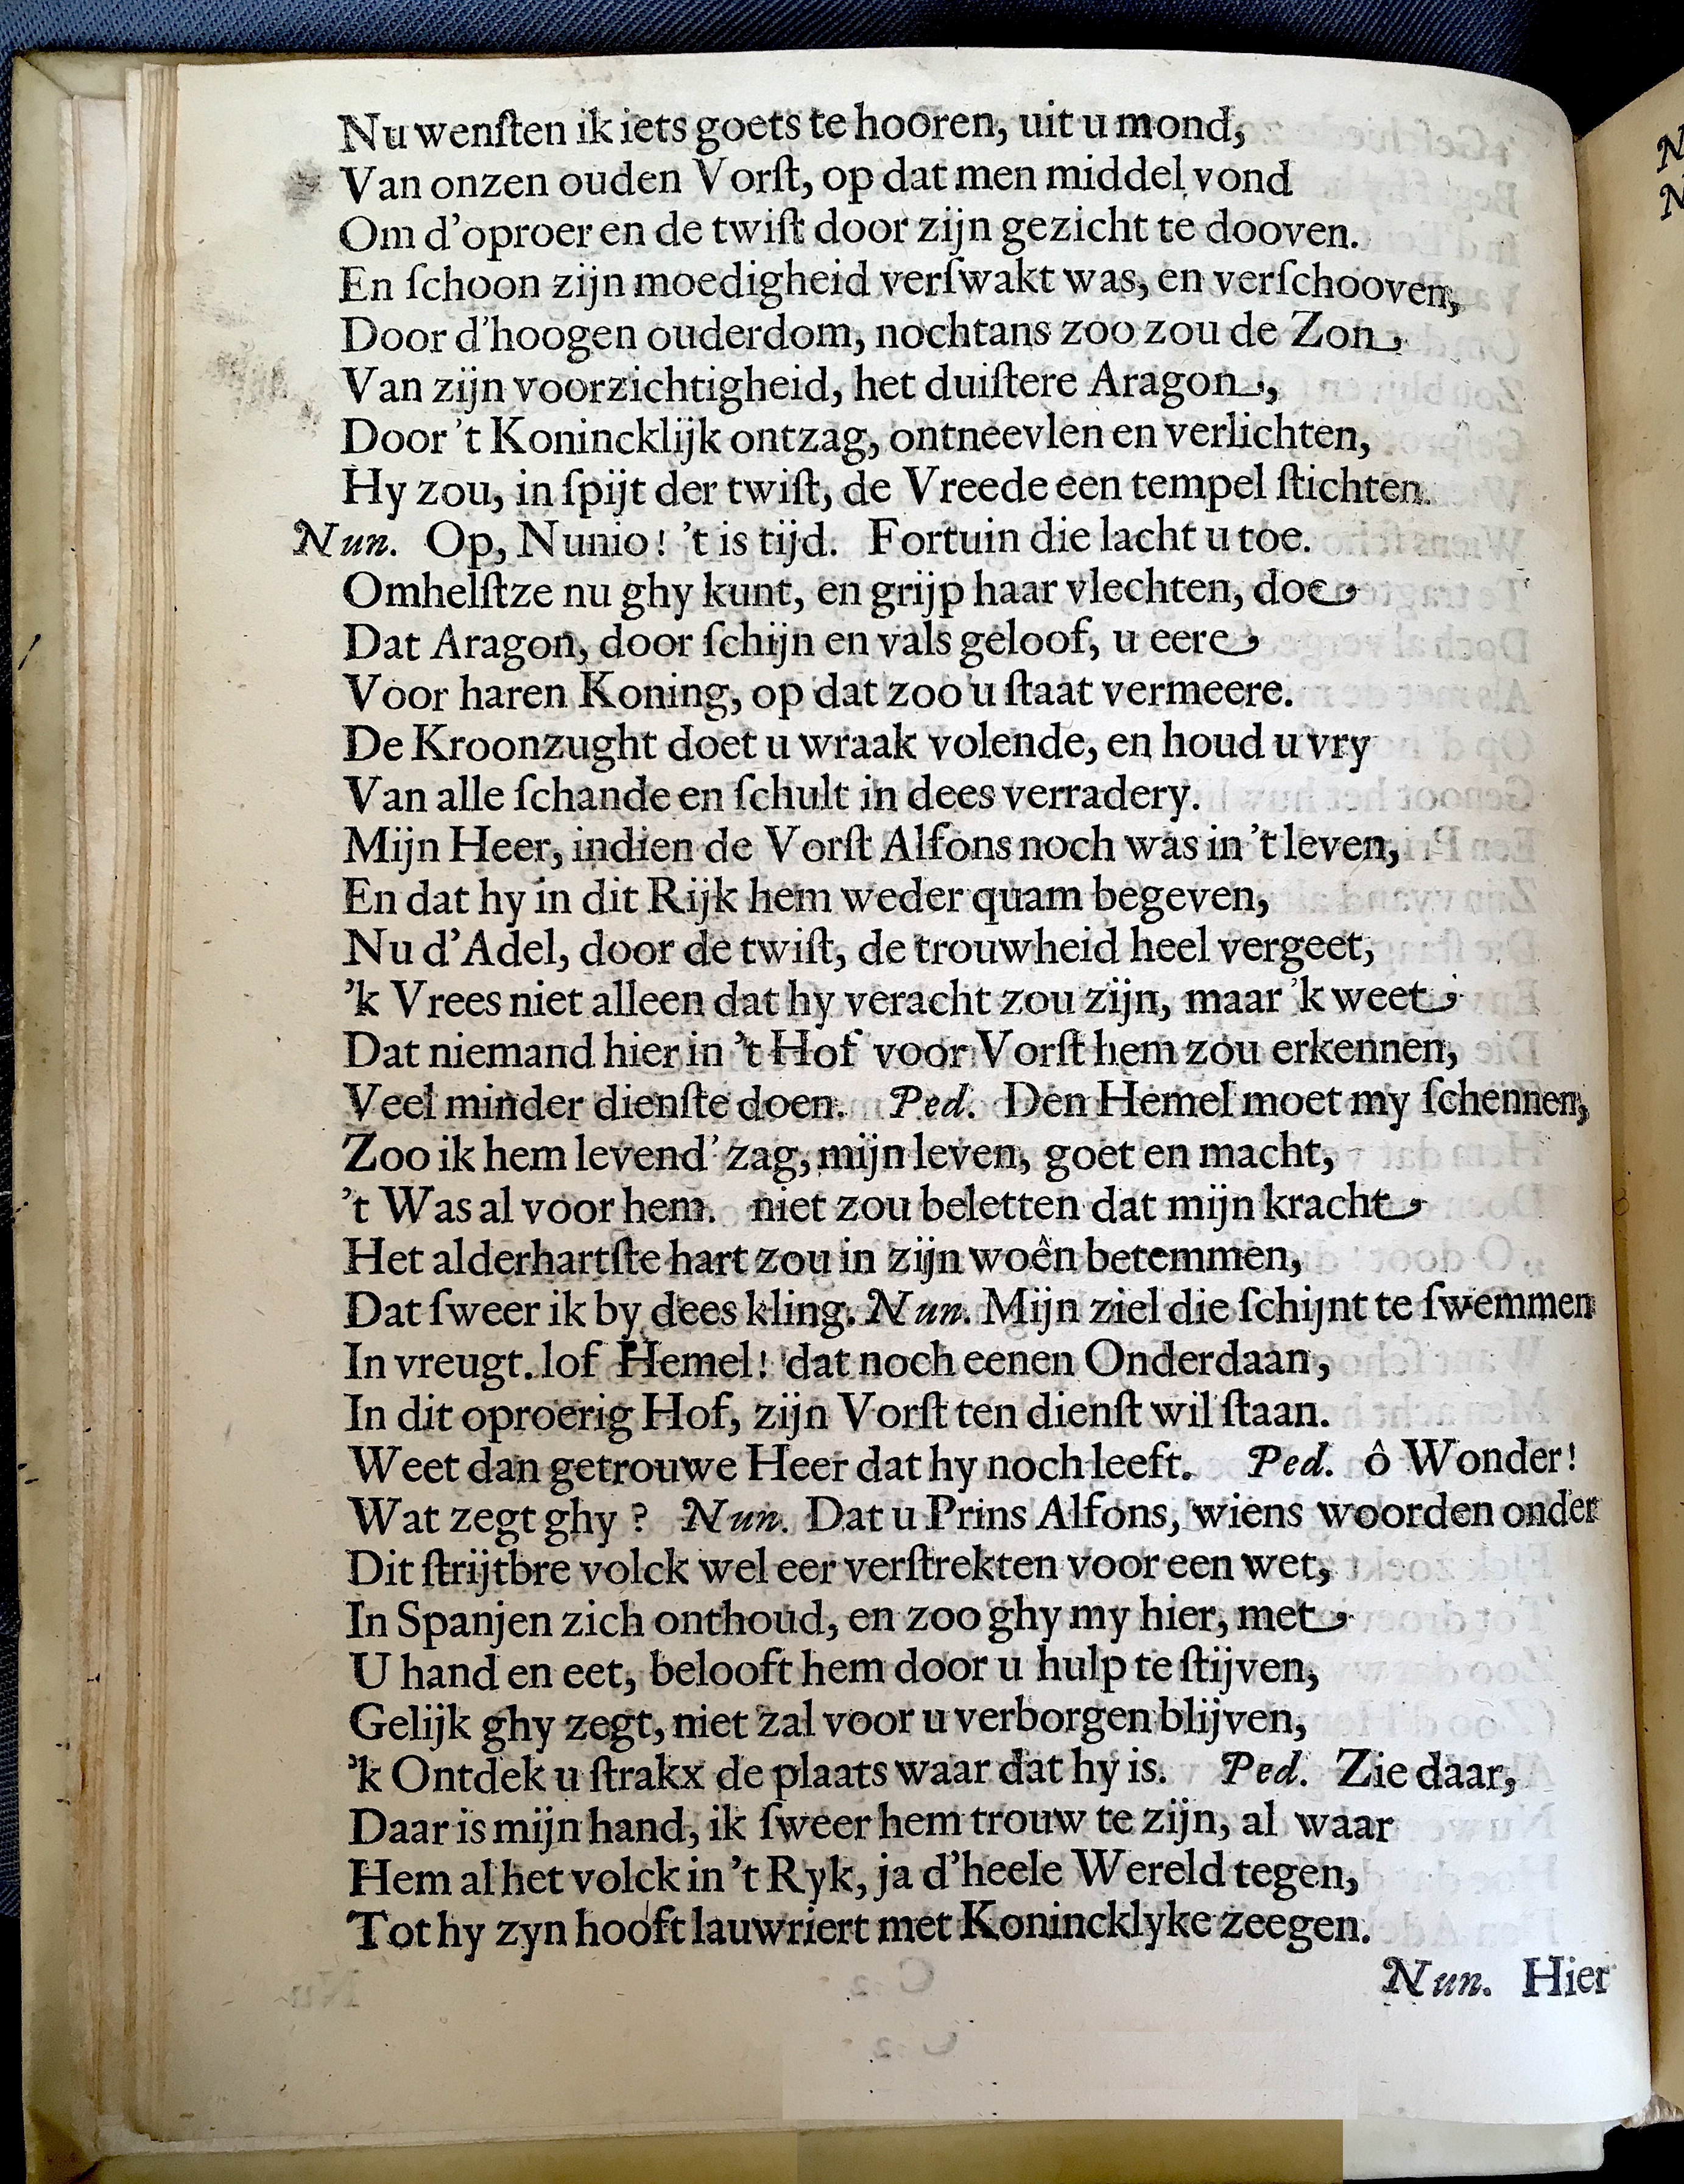 Nu wenſten ik iets goets te hooren, uit u mond,
Van onzen ouden Vorſt, op dat men middel vond
Om d'oproer en de twiſt door zijn gezicht te dooven.
En ſchoon zijn moedigheid verſwakt was, en verſchooven,
Door d'hoogen ouderdom, nochtans zoo zou de Zon,
Van zijn voorzichtigheid, het duiſtere Aragon,
Door 't Konincklijk ontzag, ontneevlen en verlichten,
Hy zou, in ſpijt der twiſt, de Vreede een tempel ſtichten.
Nun. Op, Nunio! 't is tijd. Fortuin die lacht u toe.
Omhelſtze nu ghy kunt, en grijp haar vlechten, doe
Dat Aragon, door ſchijn en vals geloof, u eere
Voor haren Koning, op dat zoo u ſtaat vermeere.
De Kroonzught doet u wraak volende, en houd u vry
Van alle ſchande en ſchult in dees verradery.
Mijn Heer, indien de Vorſt Alfons noch was in 't leven,
En dat hy in dit Rijk hem weder quam begeven,
Nu d'Adel, door de twiſt, de trouwheid heel vergeet,
'k Vrees niet alleen dat hy veracht zou zijn, maar 'k weet
Dat niemand hier in 't Hof voor Vorſt hem zou erkennen,
Veel minder dienſte doen. Ped. Den Hemel moet my ſchennen,
Zoo ik hem levend' zag, mijn leven, goet en macht,
't Was al voor hem. niet zou beletten dat mijn kracht
Het alderhartſte hart zou in zijn woên betemmen,
Dat ſweer ik by dees kling. Nun. Mijn ziel die ſchijnt te ſwemmen
In vreugt. lof Hemel! dat noch eenen Onderdaan,
In dit oproerig Hof, zijn Vorſt ten dienſt wil ſtaan.
Weet dan getrouwe Heer dat hy noch leeft. Ped. ô Wonder!
Wat zegt ghy? Nun. Dat u Prins Alfons, wiens woorden onder
Dit ſtrijtbre volck wel eer verſtrekten voor een wet,
In Spanjen zich onthoud, en zoo ghy my hier, met
U hand en eet, belooft hem door u hulp te ſtijven,
Gelijk ghy zegt, niet zal voor u verborgen blijven,
'k Ontdek u ſtrakx de plaats waar dat hy is. Ped. Zie daar,
Daar is mijn hand, ik ſweer hem trouw te zijn, al waar
Hem al het volck in 't Ryk, ja d'heele Wereld tegen,
Tot hy zyn hooft lauwriert met Konincklyke zeegen.
Nun. Hier